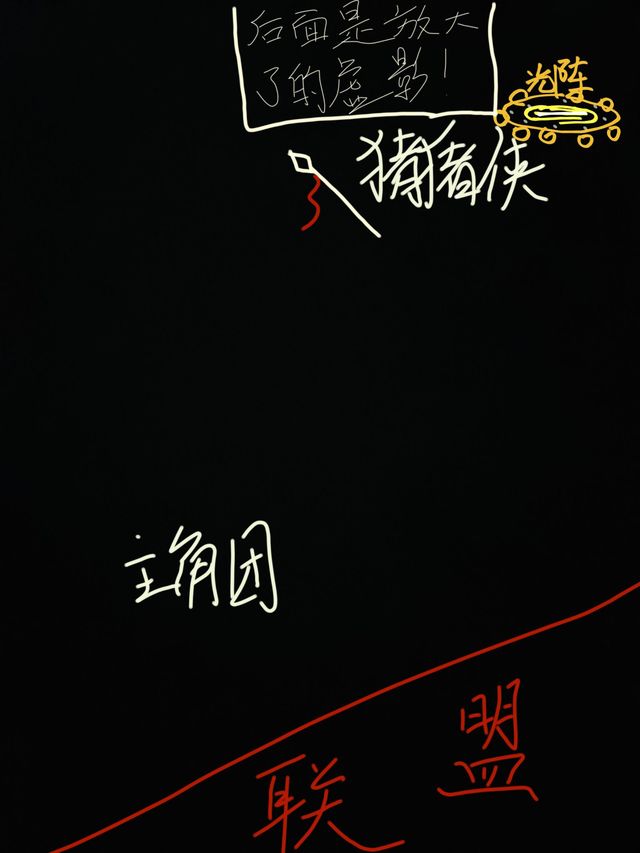 后面是放大
了的虚影！
光阵
猪猪侠
主角团
联盟